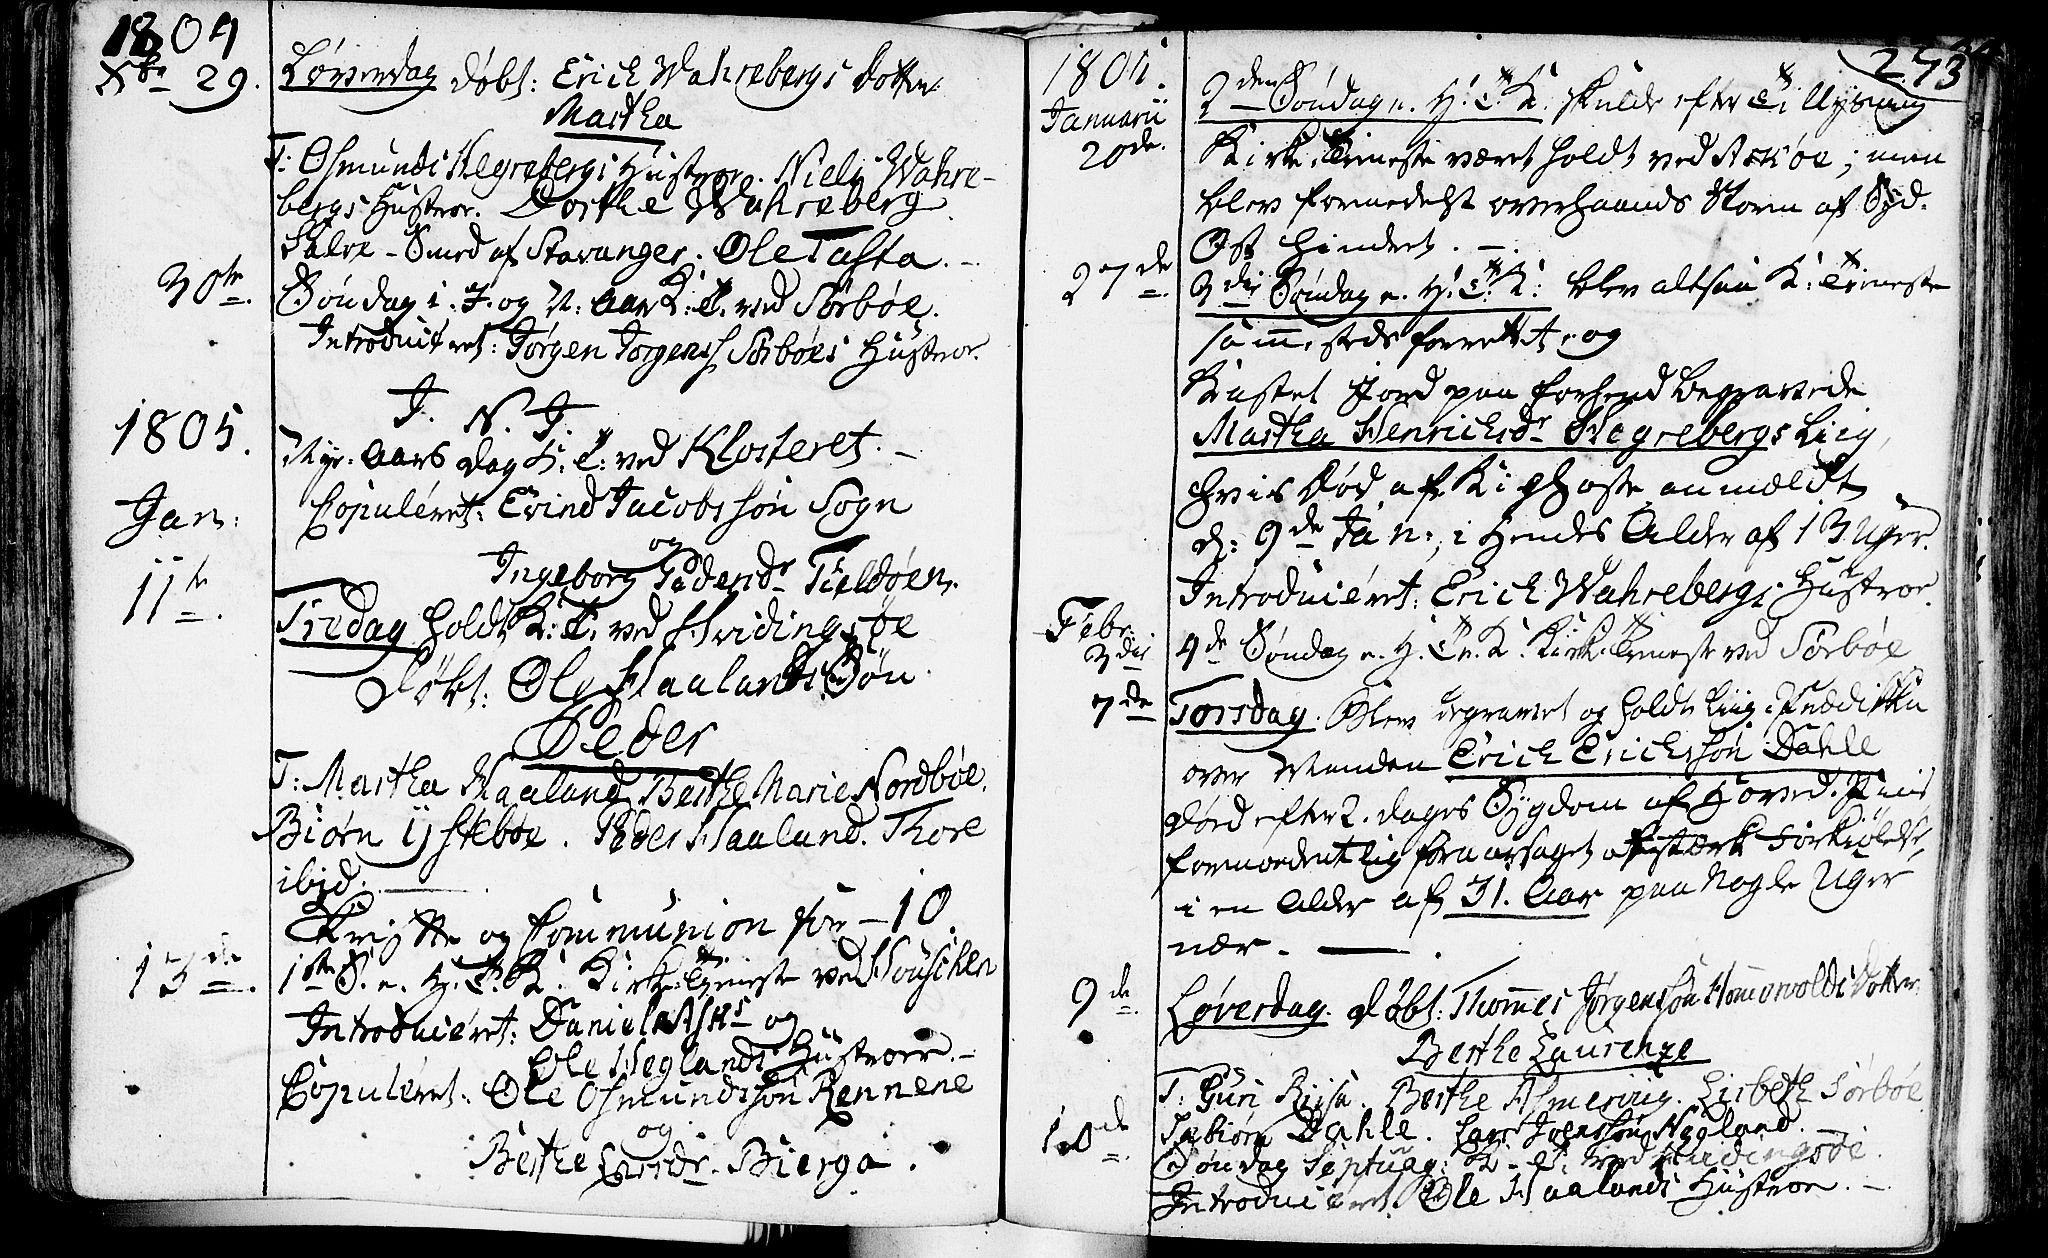 1804
Xbr 29. Løverdag døbt: Erich Wahrebergs dotter
Martha
T: Osmunds Hegrebergs Hustroe. Niels Wahre-
bergs Hustroe. Dorthe Wahreberg
Salve - Smed af Stavanger. Ole Tasta. -
30te. Søndag i. J. og N. Aar K: T. ved Sørbøe.
Introduceret: Jørgen Jørgens. Sørbøes Hustroe.
J. N. J.
1805. Nye-Aars Dag K. T: ved Klosteret. -
Jan: Copuléret: Evind Jacobssøn Sogn
og
Ingeborg Pedersdr Fieldøen.
11te. Fredag holdt K: T. ved Hvidingsøe
Døbt: Ole Haalands Søn
Peder
T: Martha Haaland Berthe Marie Nordbøe.
Biørn ijstebøe. Peder Haaland. Thore
ibid.
Skrifte og Communion for - 10.
13de. 1ste S. e. H. T. K. Kirke-Tieneste ved Houschen
Introduciéret: Daniel Asks og
Ole Heglands Hustroer. -
Copuléret: Ole Osmundssøn Rennene
og
Berthe Larsdr. Bierga.
273
1805.
Januarii
20de. 2den Søndag e. H. T. K. skulde efter Tillysning
Kirke-Tieneste været holdt ved Askøe; men
blev formedelst overhaands Storm af Syd-
Ost hindret. -
27de. 3die Søndag e. H: T: K: blev altsaa K: Tieneste
samme steds forrettet, og
Kastet Jord paa forhend begravede
Martha Henrichsdr Hegrebergs Liig,
hvis Død af Kighoste anmeldt
d: 9de Jan:, i Hendes Alder af 13 Uger.
Introduciéret: Erich Wahrebergs Hustroe.
Febr.
3die 4de Søndag e. H. T. K. Kirke-Tieneste ved Sørbøe
7de Torsdag. Blev begravet og holdt Liig-Prædiken
over Manden Erich Erichssøn Dahle
død efter 2. dages Sygdom af Hoved-Pine
formodentlig foraarsaget af stærk Forkiølelse,
i en Alder af 31. Aar paa nogle Uger
nær. -
9de. Løverdag. døbt: Thommes Jørgenssøn Hommervolds Dotter
Berthe Laurenze
T: Guri Riisa. Berthe Asmervig. Lisbeth Sørbøe
Tabiørn Dahle. Lars Joenssøn Hegland.
10de. Søndag Septuag: K. T: ved Hvidingsøe.
Introduciéret Ole Haalands Hustroe. -